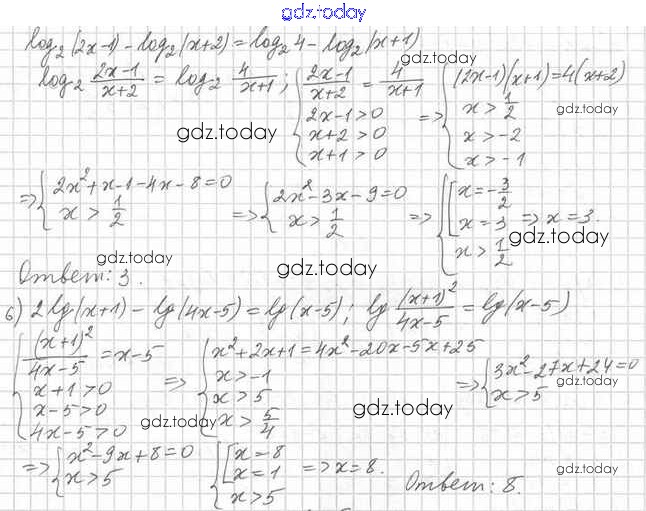 gdz.today
log₂(2x-1)-log₂(x+2)=log₂4-log₂(x+1)
gdz.today
log₂ (2x-1)/(x+2) = log₂ 4/(x+1); { (2x-1)/(x+2) = 4/(x+1) ; 2x-1>0 ; x+2>0 ; x+1>0 => { (2x-1)(x+1)=4(x+2) ; x>1/2 ; x>-2 ; x>-1
gdz.today
gdz.today
=> { 2x²+x-1-4x-8=0 ; x>1/2 => { 2x²-3x-9=0 ; x>1/2 => { [ x=-3/2 ; x=3 ; x>1/2 => x=3.
gdz.today
gdz.today
gdz.today
Ответ: 3.
б) 2lg(x+1)-lg(4x-5)=lg(x-5); lg (x+1)²/(4x-5) = lg(x-5)
{ (x+1)²/(4x-5) = x-5 ; x+1>0 ; x-5>0 ; 4x-5>0 => { x²+2x+1=4x²-20x-5x+25 ; x>-1 ; x>5 ; x>5/4 => { 3x²-27x+24=0 ; x>5
gdz.today
gdz.today
gdz.today
=> { x²-9x+8=0 ; x>5 { [ x=8 ; x=1 ; x>5 => x=8.
Ответ: 8.
gdz.today